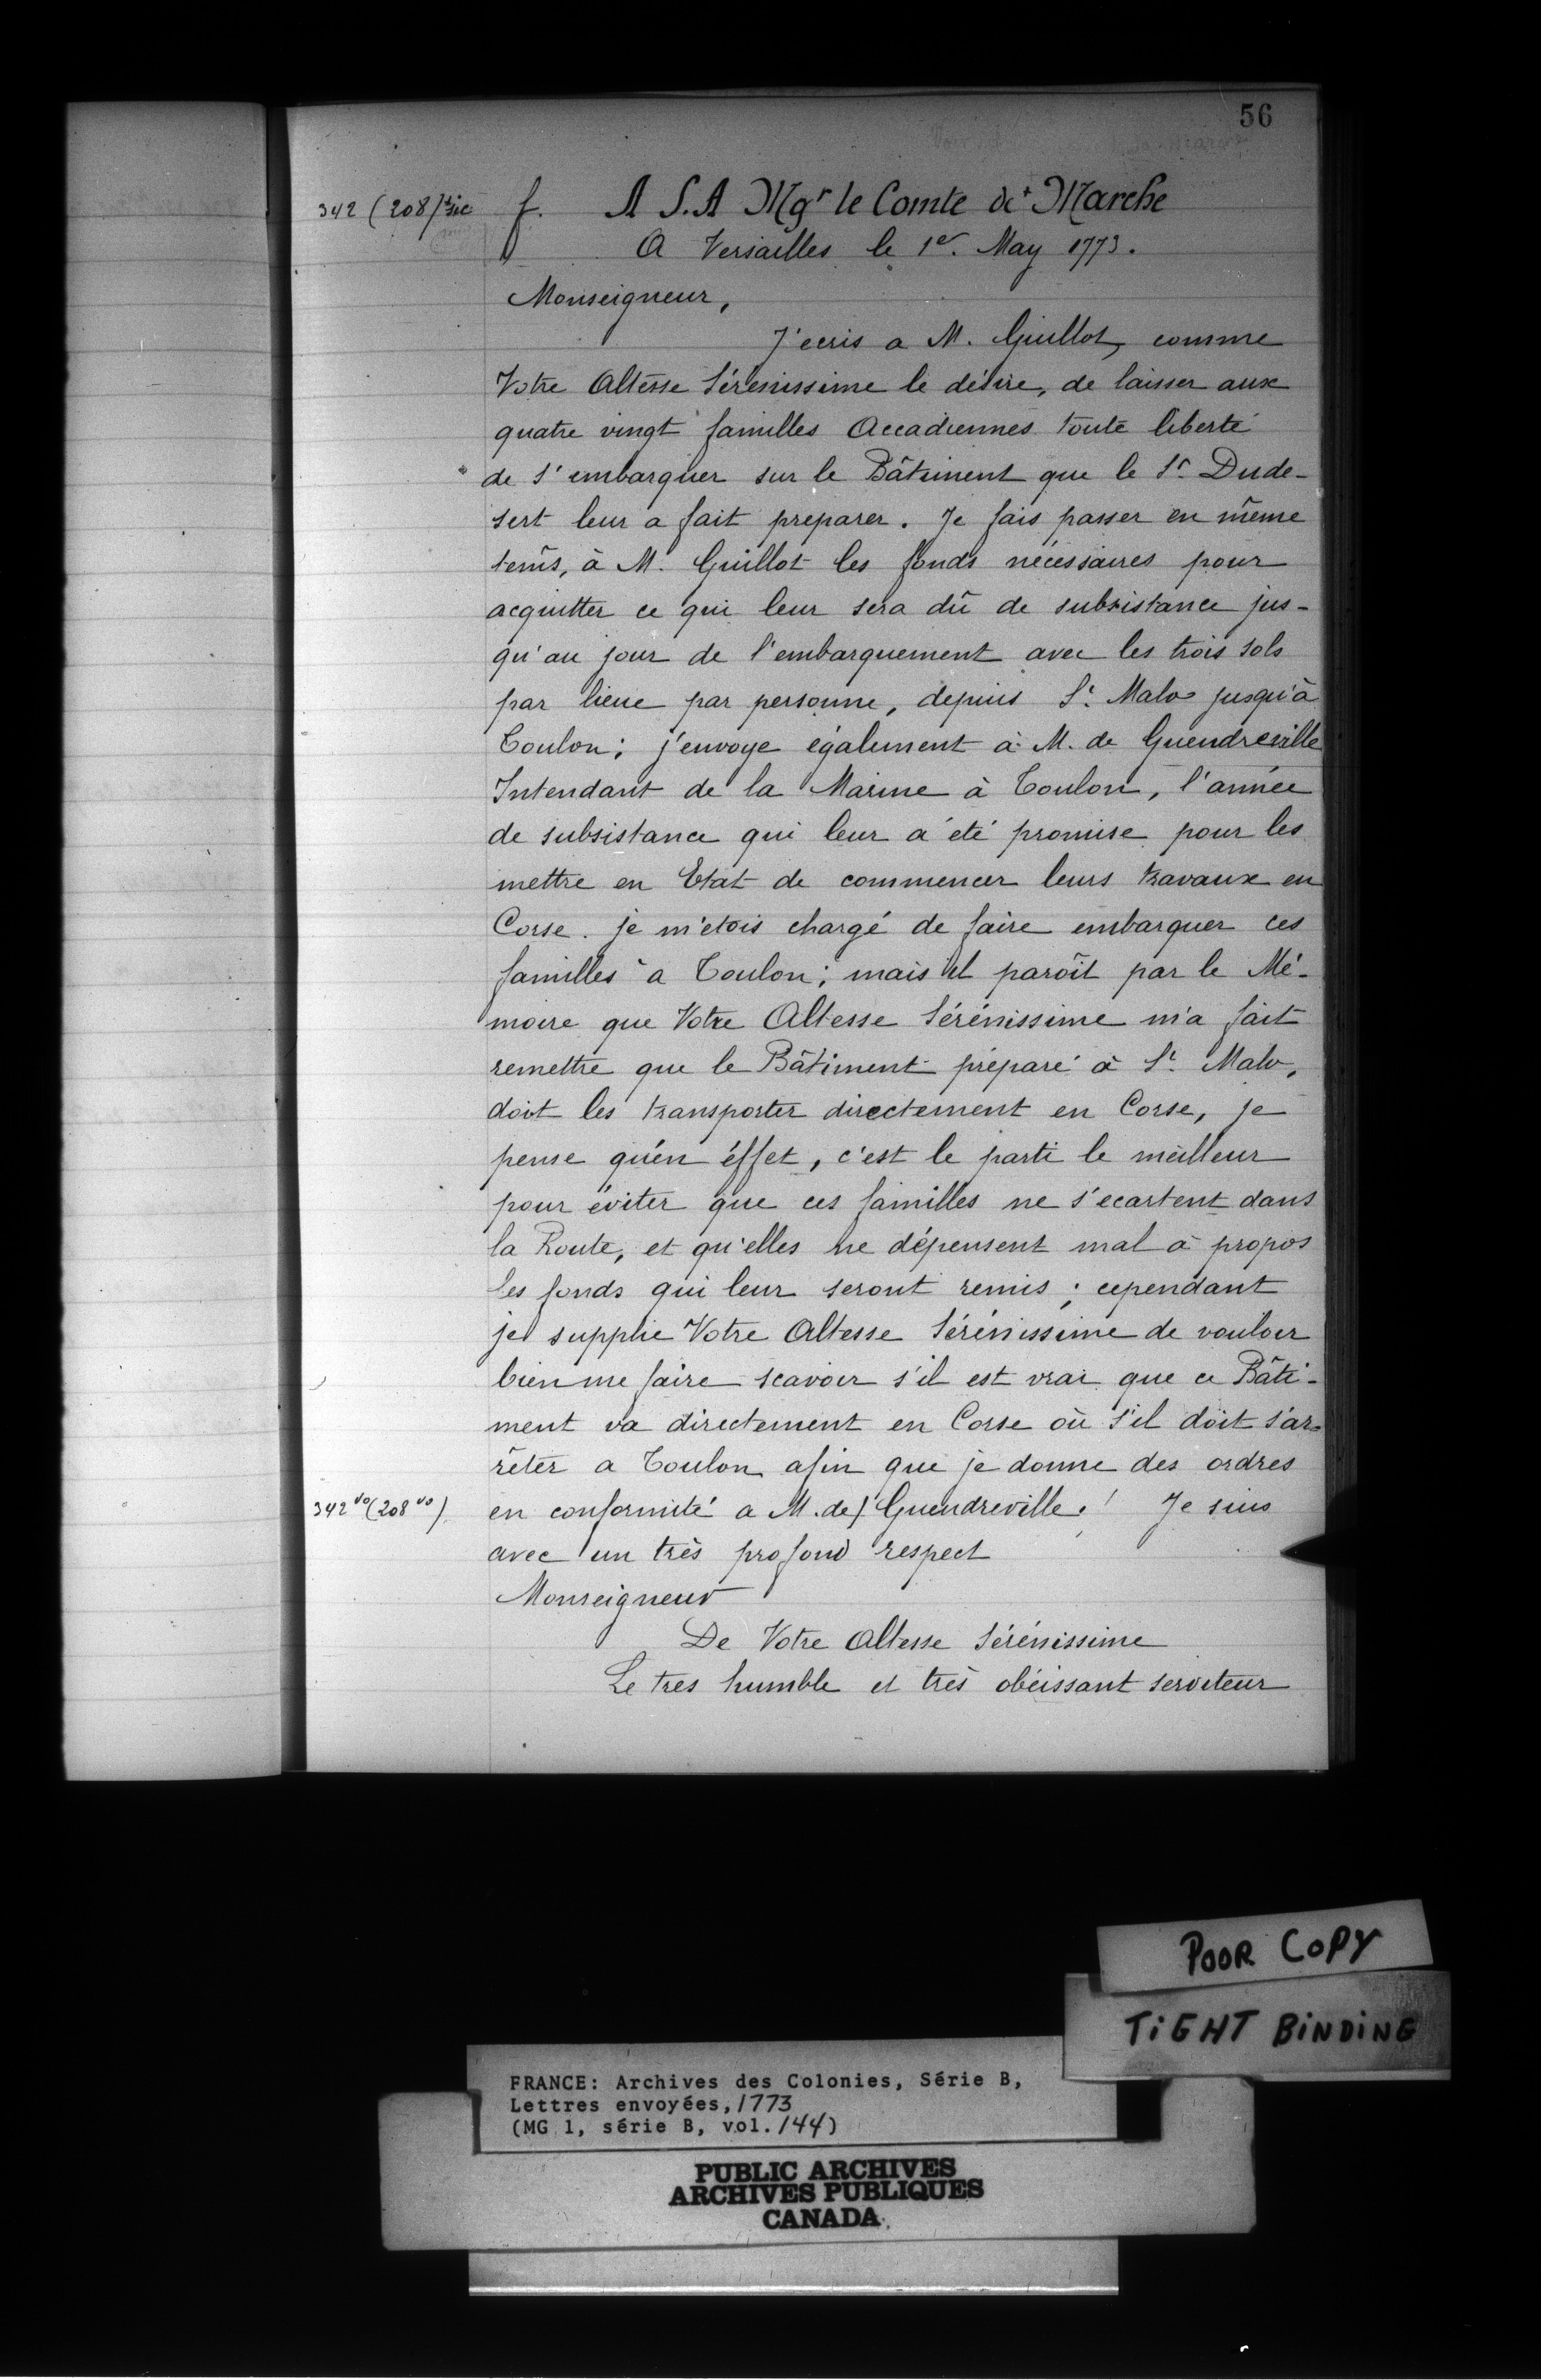 56
342 (208) sic f. A S.A Mgr le Comte de Marche
A Versailles le 1er. May 1773.
Monseigneur,
J'ecris a M. Guillot, comme
Votre Altesse Sérénissime le désire, de laisser aux
quatre vingt familles Accadiennes toute liberté
de s'embarquer sur le Bâtiment que le Sr. Dude-
sert leur a fait preparer. Je fais passer en même
tems, à M. Guillot les fonds nécessaires pour
acquitter ce qui leur sera dû de subsistance jus-
qu'au jour de l'embarquement avec les trois sols
par lieue par personne, depuis St. Malo jusqu'à
Toulon; j'envoye également à M. de Guendreville
Intendant de la Marine à Toulon, l'année
de subsistance qui leur a été promise pour les
mettre en Etat de commencer leurs travaux en
Corse. je m'etois chargé de faire embarquer ces
familles a Toulon; mais il paroît par le Mé-
moire que Votre Altesse Sérénissime m'a fait
remettre que le Bâtiment préparé à St. Malo,
doit les transporter directement en Corse, je
pense qu'en éffet, c'est le parti le meilleur
pour éviter que ces familles ne s'ecartent dans
la Route, et qu'elles ne dépensent mal à propos
les fonds qui leur seront remis; cependant
je supplie Votre Altesse Sérénissime de vouloir
bien me faire scavoir s'il est vrai que ce Bâti-
ment va directement en Corse où s'il doit s'ar-
rêter a Toulon afin que je donne des ordres
342 vo (208 vo) en conformité a M. de/ Guendreville. Je suis
avec un très profond respect
Monseigneur
De Votre Altesse Sérénissime
Le tres humble et très obéissant serviteur
POOR COPY
TIGHT BINDING
FRANCE: Archives des Colonies, Série B,
Lettres envoyées, 1773
(MG 1, série B, vol. 144)
PUBLIC ARCHIVES
ARCHIVES PUBLIQUES
CANADA